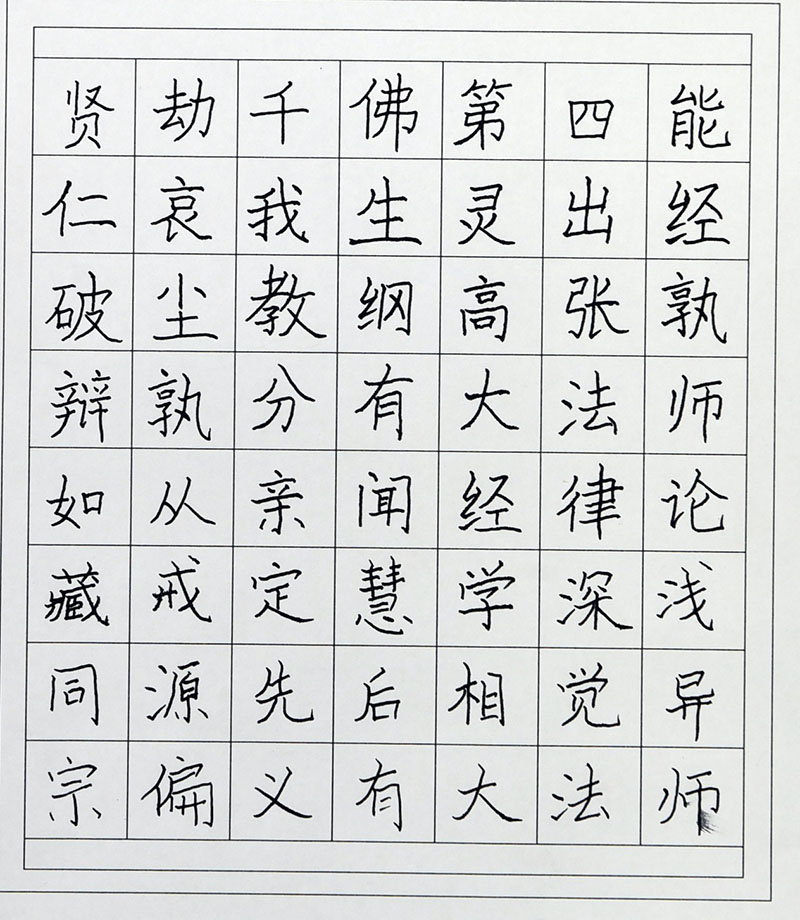 贤劫千佛第四能
仁哀我生灵出经
破尘教纲高张孰
辩孰分有大法师
如从亲闻经律论
藏戒定慧学深浅
同源先后相觉异
宗偏义有大法师